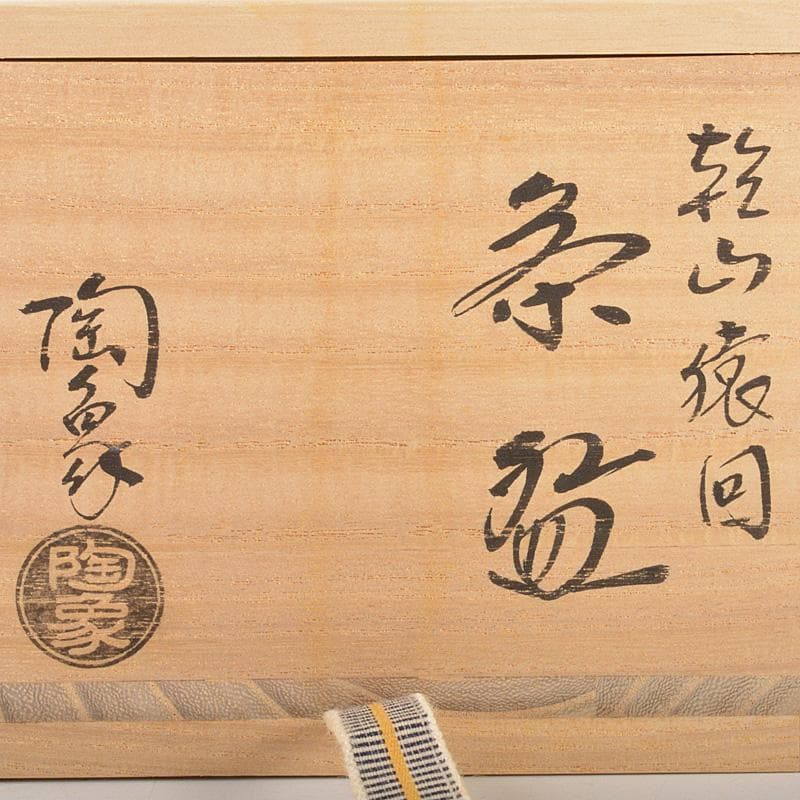 乾山猿回
茶盌
陶象
陶象